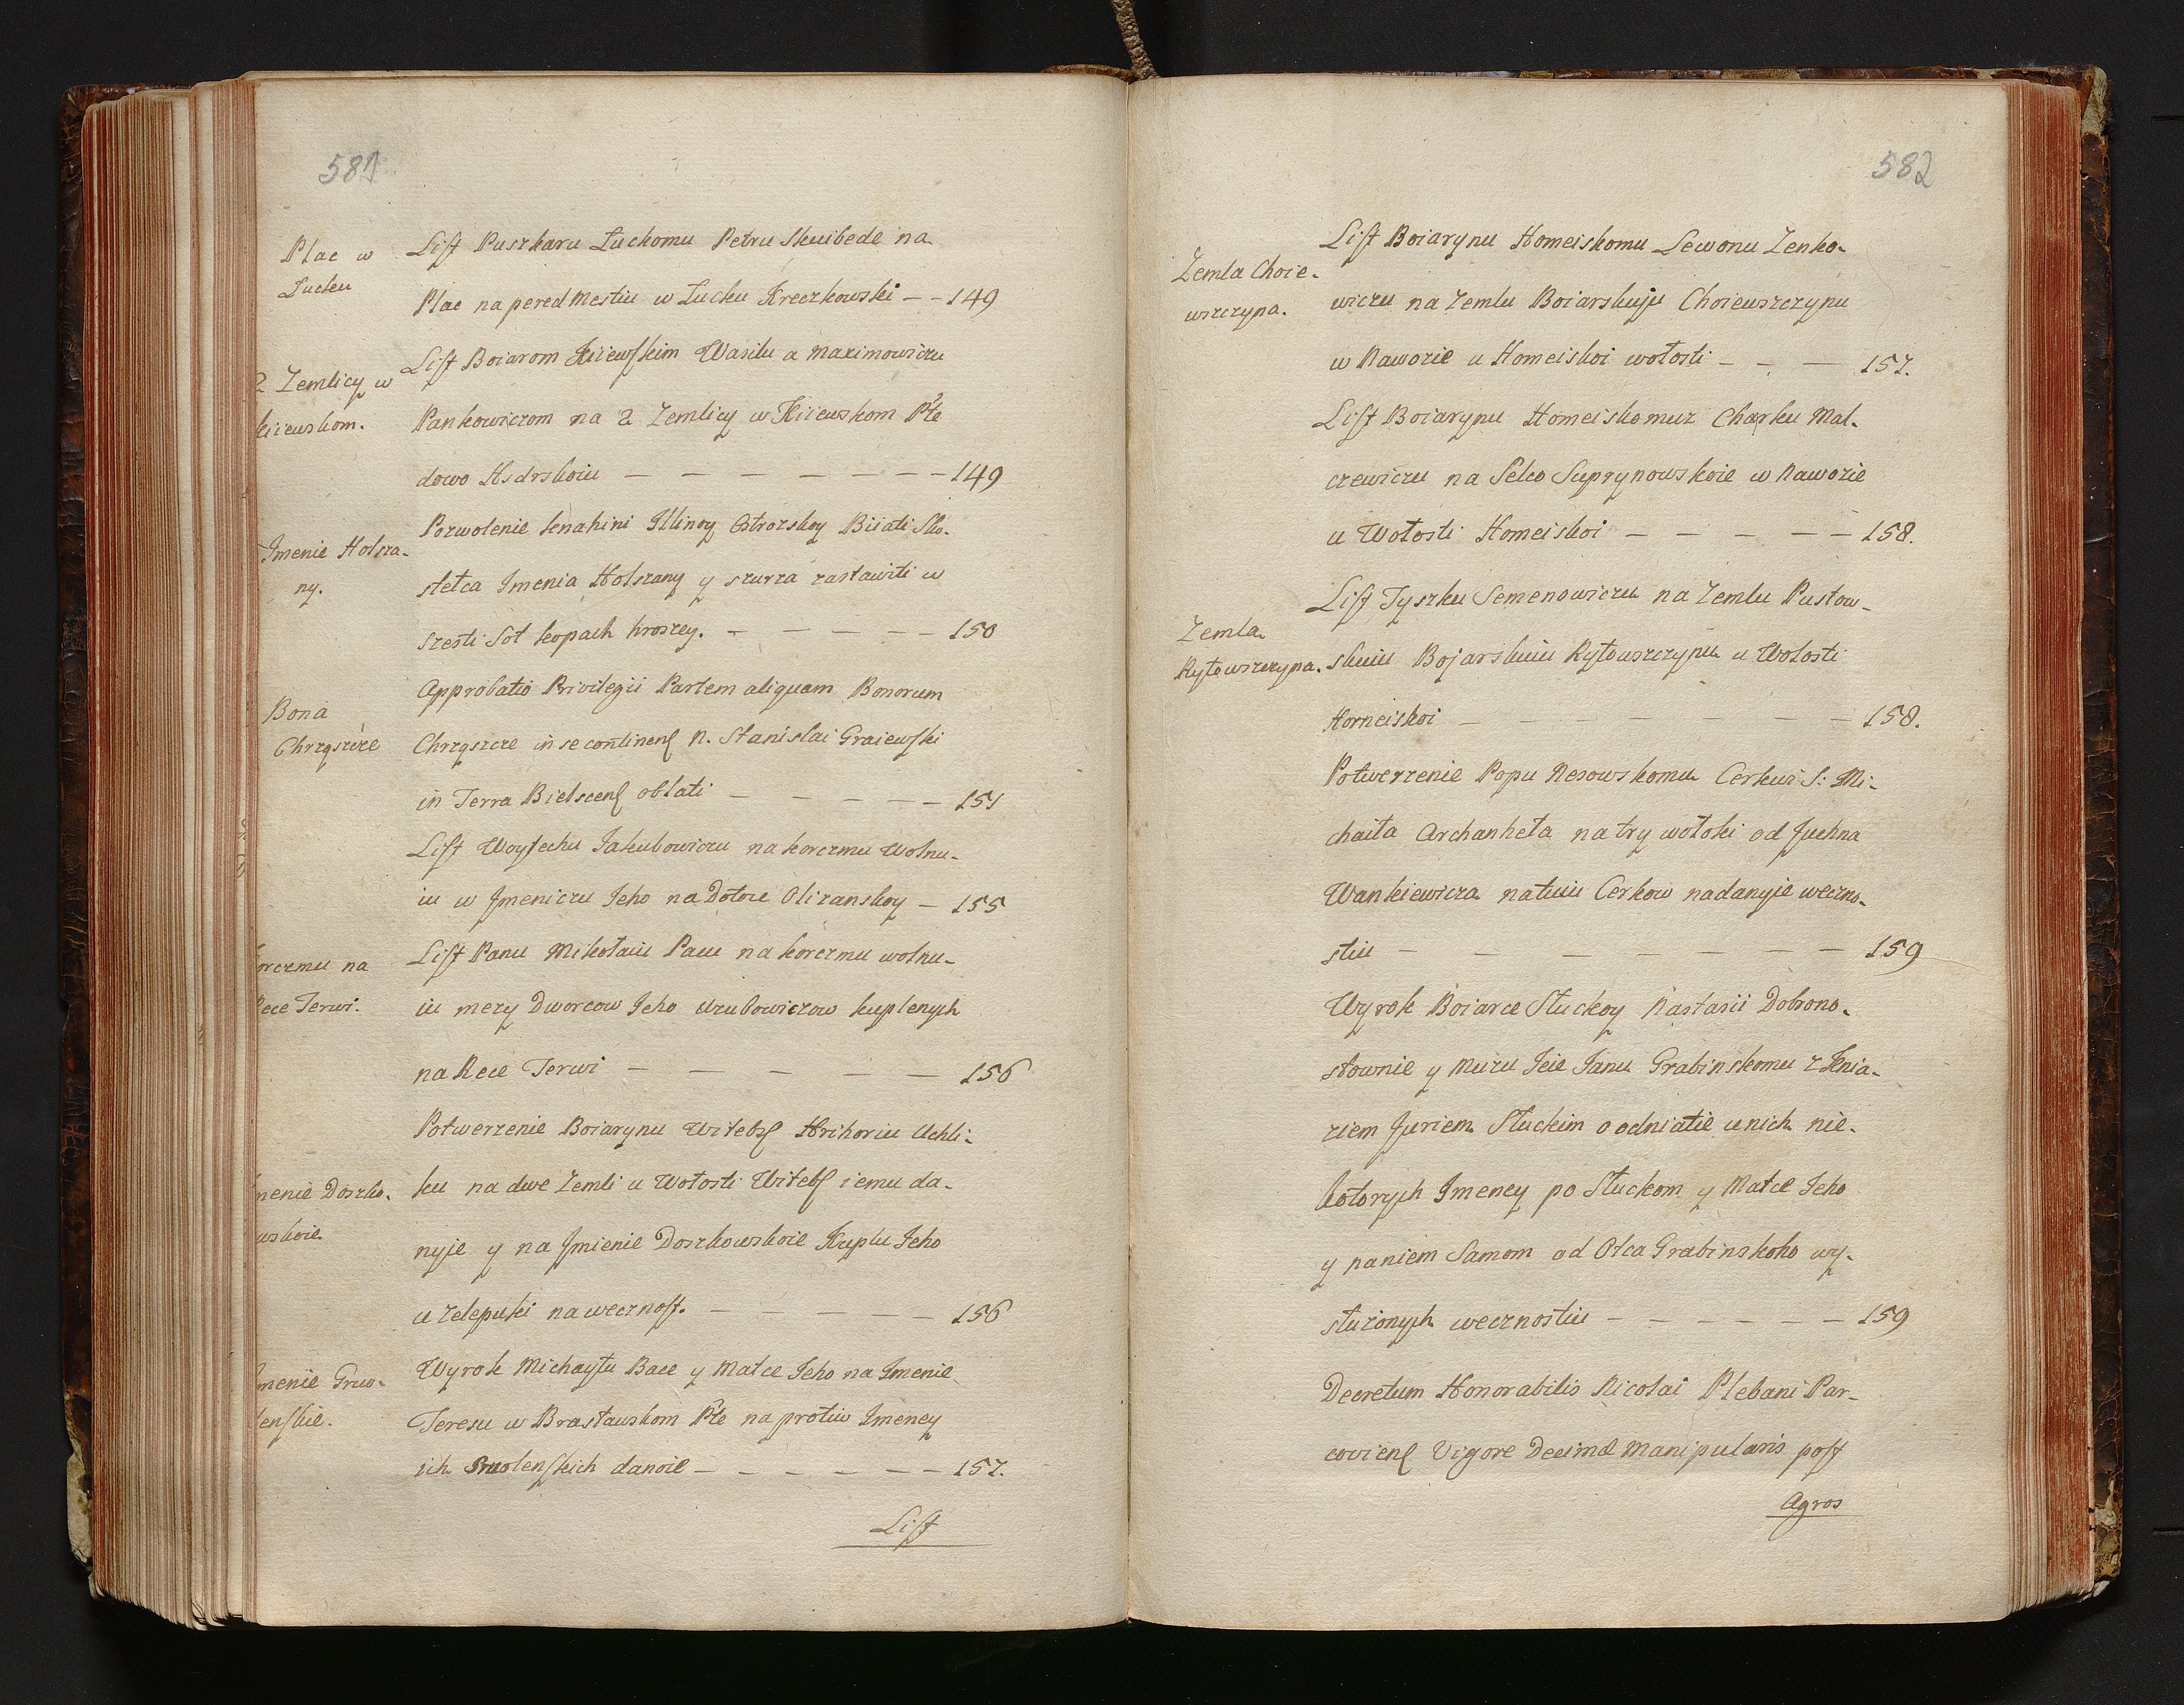 581
Plac w
Łucku
List Puszkaru Łuckomu Petru Skuibede na
Plac na pered Mestiu w Łucku Kreczkowski — — 149
2 Zemlicy w
kiiewskom.
List Boiarom Kiiewskim Wasilu a Maximowiczu
Pankowiczom na 2 Zemlicy w Kiiewskom Pte
dowo Hsdrskoiu — — — — — — — 149
Imenie Holsza-
ny.
Pozwolenie knahini Illinoy Ostrozskoy Biiati Sko-
stełca Imenia Holszany y szurza zastawiti w
szesti Sot kopach hroszey. — — — — — 150
Bona
Chrząszcze
Approbatio Privilegii Partem aliquam Bonorum
Chrząszcze in se continens N. Stanislai Graiewski
in Terra Bielscens oblati — — — — — 151
List Woytechu Jakubowiczu na korczmu Wolnu-
iu w Jmeniczu Jeho na Dołoce Olizanskoy — 155
orczmu na
ece Terwi.
List Panu Mikołaiu Pacu na korczmu wolnu-
iu mezy Dworcow Jeho Uzubowiczow kuplenych
na Rece Terwi — — — — — 156
Potwerzenie Boiarynu Witebs Hrihoriu Uchli-
menie Doszko-
wskoie
ku na dwe Zemli u Wołosti Witebs iemu da-
nyie y na Jmienie Doszkowskoie Kuplu Jeho
u Zelepuki na wecznost. — — — — — 156
menie Gruo-
lenskie.
Wyrok Michayłu Bace y Matce Jeho na Imenie
Teresu w Brasławskom Pte na protiw Imeney
ich Smolenskich danoie — — — — — — 157.
List
582
Zemla Choie-
wszczyna.
List Boiarynu Homeiskomu Lewonu Zenko-
wiczu na Zemlu Boiarskuju Choiewszczynu
w Nawozie u Homeiskoi wołosti — — — 157.
List Boiarynu Homeiskomuz Charku Mal-
czewiczu na Selco Suprynowskoie w Nawozie
u Wołosti Homeiskoi — — — — — 158.
Zemla
Ryłowszczyna.
List Tyszku Semenowiczu na Zemlu Pustow-
skuiu Bojarskuiu Ryłowszczynu u Wolosti
Homeiskoi — — — — — — — 158.
Potwerzenie Popu Nesowskomu Cerkwi S: Mi-
chaiła Archanheła na try wołoki od Juchna
Wankiewicza na tuiu Cerkow nadanyie weczno-
stiu — — — — — — 159
Wyrok Boiarce Słuckoy Nastasii Dobrono-
słownie y Muzu Jeie Janu Grabinskomu z Knia-
ziem Juriem Słuckim o odniatie u nich nie-
kotorych Imeney po Słuckom y Matce Jeho
y paniem Samom od Otca Grabinskoho wy-
służonych wecznostiu — — — — — — 159
Decretum Honorabilis Nicolai Plebani Par-
coviens Vigore Decimæ Manipularis post
Agros